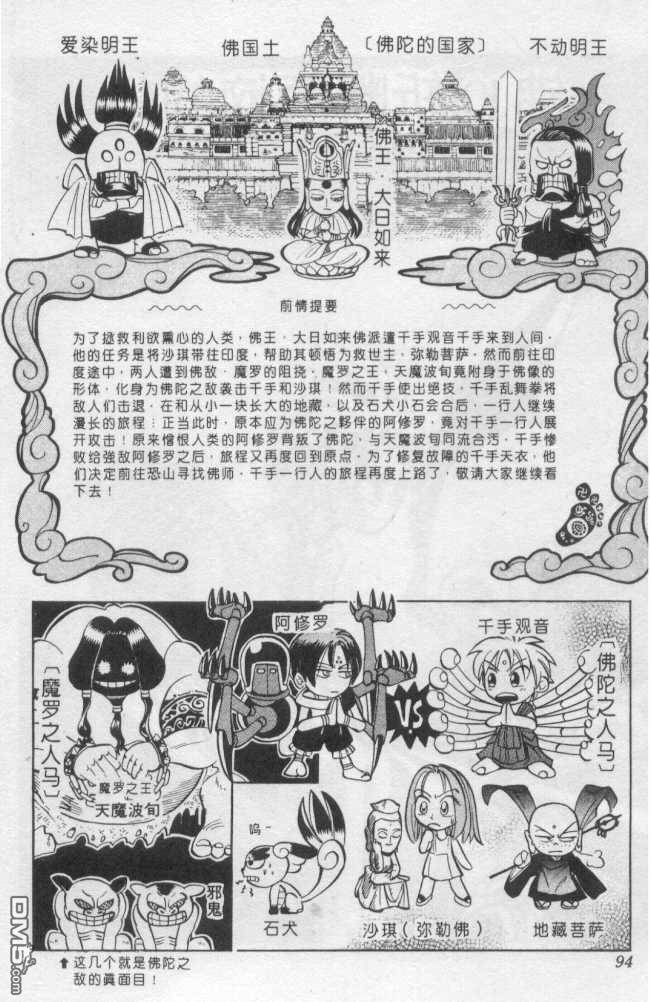 爱染明王
佛国土
〔佛陀的国家〕
不动明王
佛王 大日如来
前情提要
为了拯救利欲熏心的人类，佛王．大日如来佛派遣千手观音千手来到人间．
他的任务是将沙琪带往印度，帮助其顿悟为救世主．弥勒菩萨．然而前往印
度途中，两人遭到佛敌．魔罗的阻挠．魔罗之王．天魔波旬竟附身于佛像的
形体，化身为佛陀之敌袭击千手和沙琪！然而千手使出绝技，千手乱舞拳将
敌人们击退．在和从小一块长大的地藏，以及石犬小石会合后，一行人继续
漫长的旅程；正当此时，原本应为佛陀之夥伴的阿修罗，竟对千手一行人展
开攻击！原来憎恨人类的阿修罗背叛了佛陀，与天魔波旬同流合污．千手惨
败给強敌阿修罗之后，旅程又再度回到原点．为了修复故障的千手天衣，他
们决定前往恐山寻找佛师．千手一行人的旅程再度上路了，敬请大家继续看
下去！
阿修罗
千手观音
〔魔罗之人马〕
VS
〔佛陀之人马〕
魔罗之王
天魔波旬
呜~
邪鬼
石犬
沙琪（弥勒佛）
地藏菩萨
⬆这几个就是佛陀之
敌的真面目！
94
DM5.com